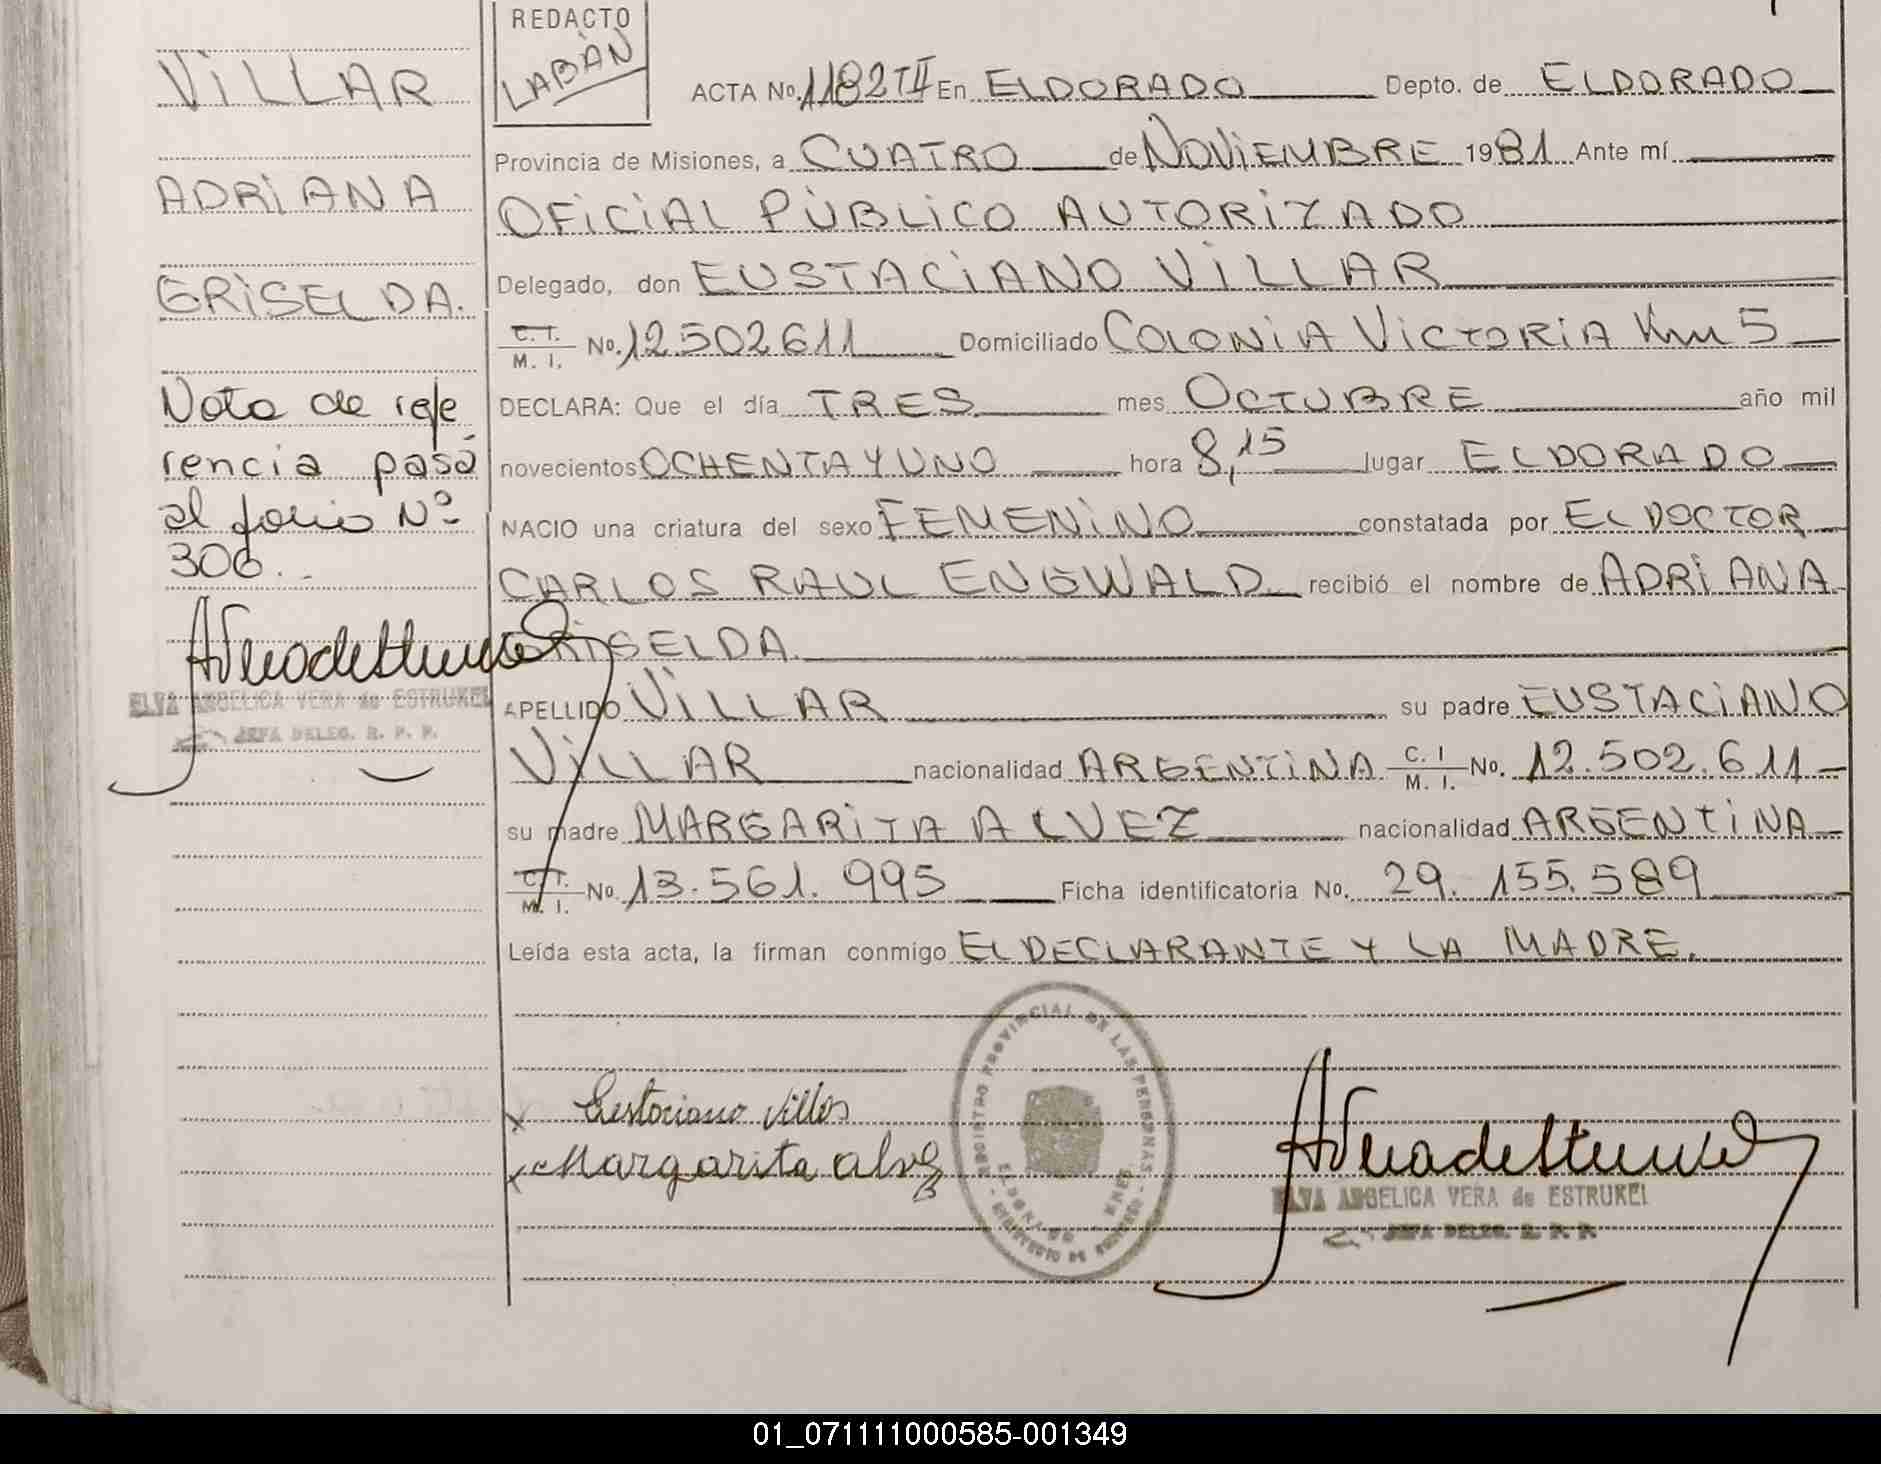 VILLAR
ADRIANA
GRISELDA.
Nota de refe
rencia pasó
al folio Nº
306.
ELVA ANGELICA VERA de ESTRUKEL
JEFA DELEG. R. P. P.
REDACTO
LABÁN
ACTA No. 1182 TII En ELDORADO Depto. de ELDORADO
Provincia de Misiones, a CUATRO de NOVIEMBRE 1981 Ante mí
OFICIAL PÚBLICO AUTORIZADO
Delegado, don EUSTACIANO VILLAR
C. I. M. I. No. 12502611 Domiciliado COLONIA VICTORIA Km 5
DECLARA: Que el día TRES mes OCTUBRE año mil
novecientos OCHENTA Y UNO hora 8,15 lugar ELDORADO
NACIO una criatura del sexo FEMENINO constatada por EL DOCTOR
CARLOS RAUL ENGWALD recibió el nombre de ADRIANA
GRISELDA.
APELLIDO VILLAR su padre EUSTACIANO
VILLAR nacionalidad ARGENTINA C. I M. I. No. 12.502.611
su madre MARGARITA ALVEZ nacionalidad ARGENTINA
C. I. M. I. No. 13.561.995 Ficha identificatoria No. 29.155.589
Leída esta acta, la firman conmigo EL DECLARANTE Y LA MADRE.
REGISTRO PROVINCIAL DE LAS PERSONAS
ELDORADO
Eustaciano Villar
Margarita Alvez
ELVA ANGELICA VERA de ESTRUKEL
JEFA DELEG. R. P. P.
01_071111000585-001349